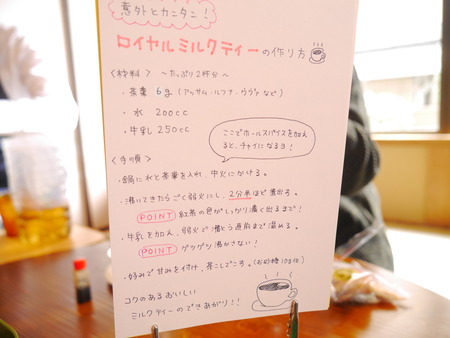 意外とカンタン!
ロイヤルミルクティーの作り方
<材料> ~たっぷり2杯分~
・茶葉 6g (アッサム・ルフナ・ウヴァなど)
・水 200cc
・牛乳 250cc
ここでホールスパイスを加え
ると、チャイになるヨ!
<手順>
・鍋に水と茶葉を入れ、中火にかける。
・沸いてきたらごく弱火にし、2分半ほど煮出す。
POINT 紅茶の色がしっかり濃く出るまで!
・牛乳を加え、弱火で沸とう直前まで温める。
POINT グツグツ沸かさない!
・お好みで甘みを付け、茶こしでこす。(お砂糖10g位)
コクのあるおいしい
ミルクティーのできあがり!!